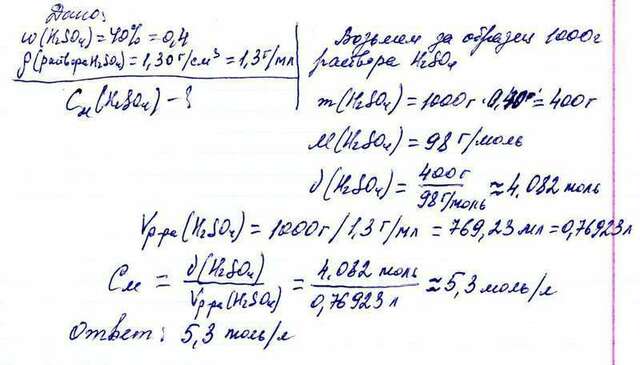 Дано:
ω(H₂SO₄) = 40% = 0,4
ρ(раствора H₂SO₄) = 1,30 г/см³ = 1,3 г/мл
Cм(H₂SO₄) - ?
Возьмем за образец 1000г
раствора H₂SO₄
m(H₂SO₄) = 1000г · 0,40 = 400г
M(H₂SO₄) = 98 г/моль
ν(H₂SO₄) = 400г / 98 г/моль ≈ 4.082 моль
Vр-ра(H₂SO₄) = 1000г / 1,3 г/мл = 769,23 мл = 0,76923л
Cм = ν(H₂SO₄) / Vр-ра(H₂SO₄) = 4.082 моль / 0,76923 л ≈ 5,3 моль/л
Ответ: 5,3 моль/л